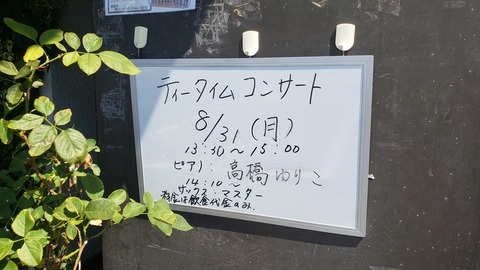 ティータイム コンサート
8/31(月)
13:30〜15:00
ピアノ: 高橋ゆりこ
14:10〜
サックス:マスター
料金は飲食代金のみ.